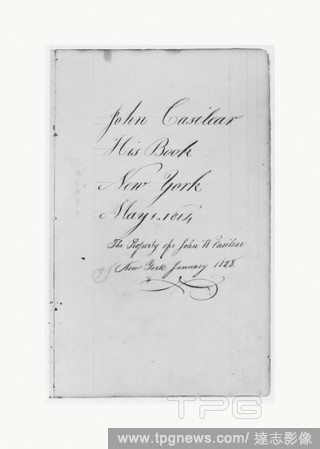 John Casilear
His Book
New York
May 1. 1814
The Property of John W Casilear
New York January 1828.
TPG
www.tpgnews.com/ 達志影像